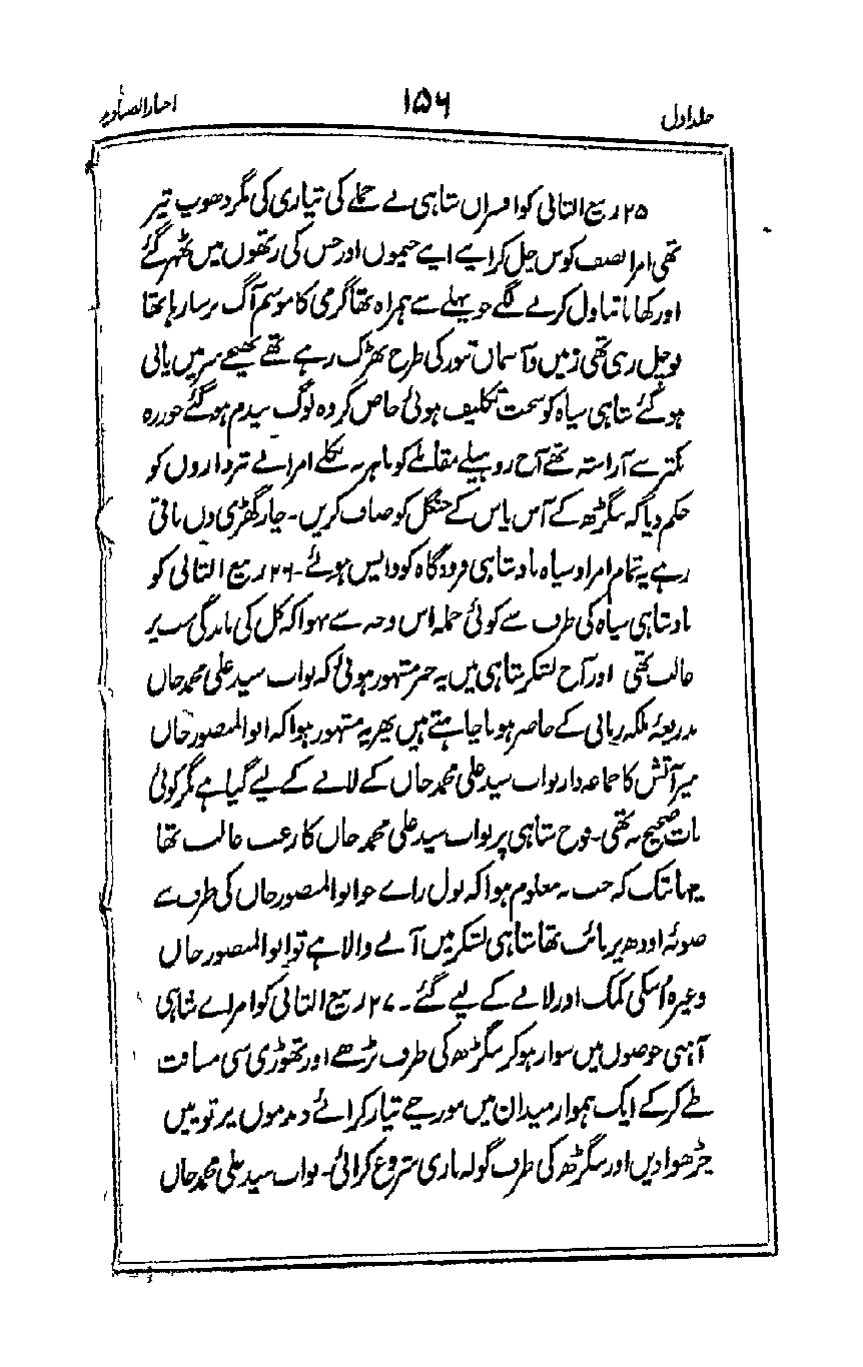 جلد اول ۱۵۶ اخبار الصنادید
۲۵ ربیع الثانی کو افسران شاہی نے حملے کی تیاری کی مگر دھوپ تیز
تھی امرا نصف کوس چل کر اپنے اپنے خیموں اور خس کی رتھوں میں ٹھہر گئے
اور کھانا تناول کرنے لگے جو پہلے سے ہمراہ تھا گرمی کا موسم آگ برسا رہا تھا
لو چل رہی تھی زمین و آسمان تنور کی طرح بھڑک رہے تھے بھیجے سر میں پانی
ہو گئے شاہی سپاہ کو سخت تکلیف ہوئی خاص کر وہ لوگ بیدم ہو گئے جو زرہ
بکتر سے آراستہ تھے آج روہیلے مقابلے کو باہر نہ نکلے امرا نے تبرداروں کو
حکم دیا کہ بنگڑھ کے آس پاس کے جنگل کو صاف کریں۔ چار گھڑی دن باقی
رہے یہ تمام امرا و سپاہ بادشاہی فرودگاہ کو واپس ہوئے۔ ۲۶ ربیع الثانی کو
بادشاہی سپاہ کی طرف سے کوئی حملہ اس وجہ سے نہوا کہ کل کی ماندگی سب پر
غالب تھی اور آج لشکر شاہی میں یہ خبر مشہور ہوئی کہ نواب سید علی محمد خاں
بذریعۂ ملکہ زمانی کے حاضر ہونا چاہتے ہیں پھر یہ مشہور ہوا کہ ابوالمنصور خاں
میر آتش کا جماعہ دار نواب سید علی محمد خاں کے لانے کے لیے گیا ہے مگر کوئی
بات صحیح نہ تھی۔ فوج شاہی پر نواب سید علی محمد خاں کا رعب غالب تھا
یہانتک کہ جب یہ معلوم ہوا کہ نول راے جو ابوالمنصور خاں کی طرف سے
صوبۂ اودھ پر نائب تھا شاہی لشکر میں آنے والا ہے تو ابوالمنصور خاں
وغیرہ اسکی کمک اور لانے کے لیے گئے۔ ۲۷ ربیع الثانی کو امراے شاہی
آہنی حوضوں میں سوار ہو کر بنگڑھ کی طرف بڑھے اور تھوڑی سی مسافت
طے کر کے ایک ہموار میدان میں مورچے تیار کرائے دمدموں پر توپیں
چڑھوا دیں اور بنگڑھ کی طرف گولہ باری شروع کرائی۔ نواب سید علی محمد خاں